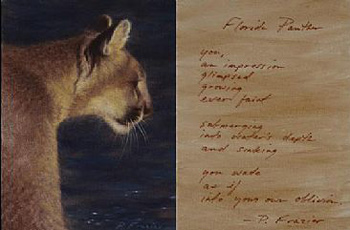 Florida Panther
you,
an impression
glimpsed
growing
ever faint
submerging
into water's depth
and sinking
you wade
as if
into your own oblivion.
— P. Frazier